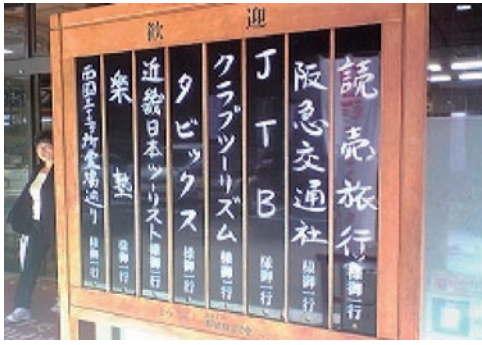 歓迎
読売旅行 様御一行
阪急交通社 様御一行
JTB 様御一行
クラブツーリズム 様御一行
タビックス 様御一行
近畿日本ツーリスト 様御一行
楽塾 様御一行
西国三十三所霊場巡り 様御一行